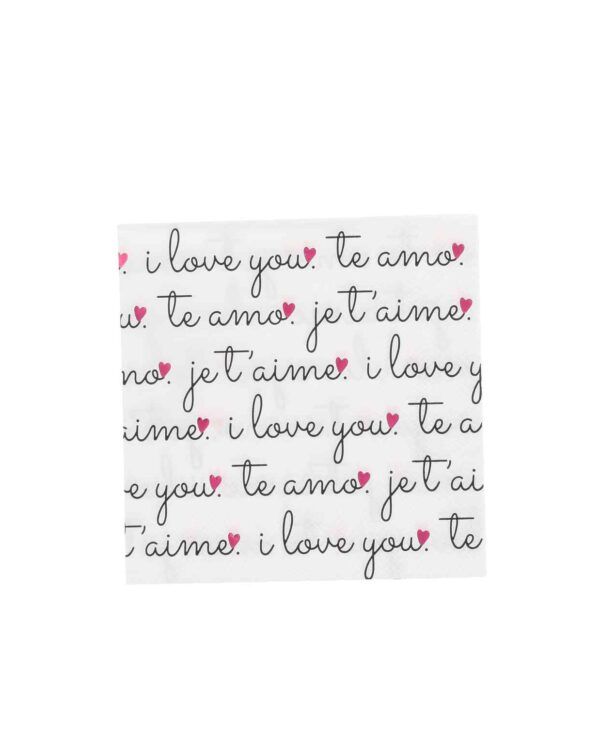 . i love you. te amo.
u. te amo. je t'aime.
no. je t'aime. i love y
aime. i love you. te a
e you. te amo. je t'ai
t'aime. i love you. te